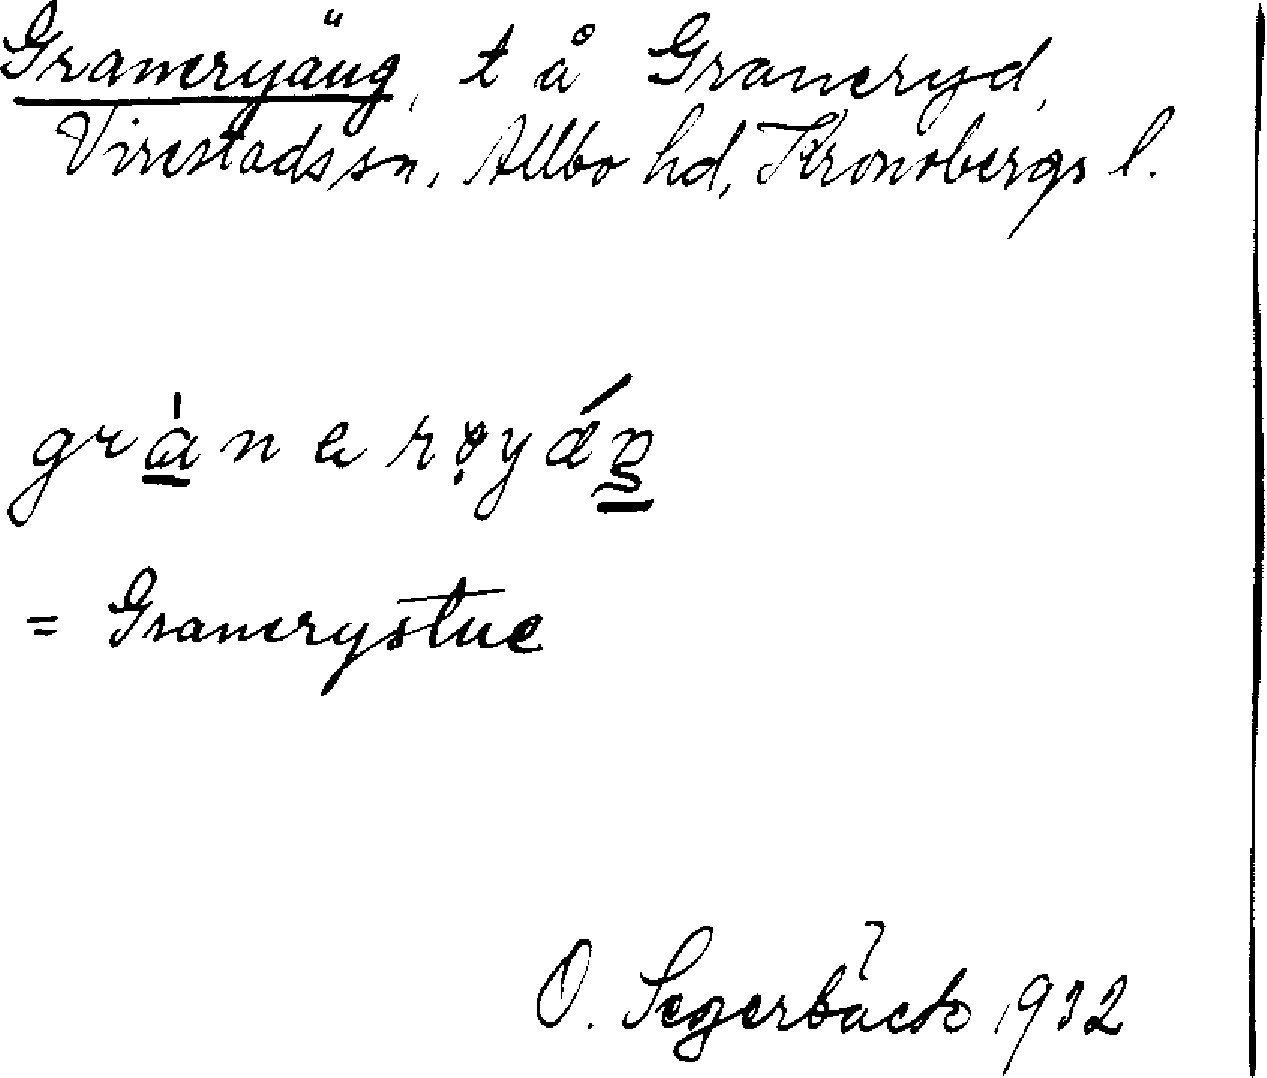 Graneryäng, t å Graneryd,
Virestads sn, Allbo hd, Kronobergs l.
= Granerystue
O. Segerbäck 1932